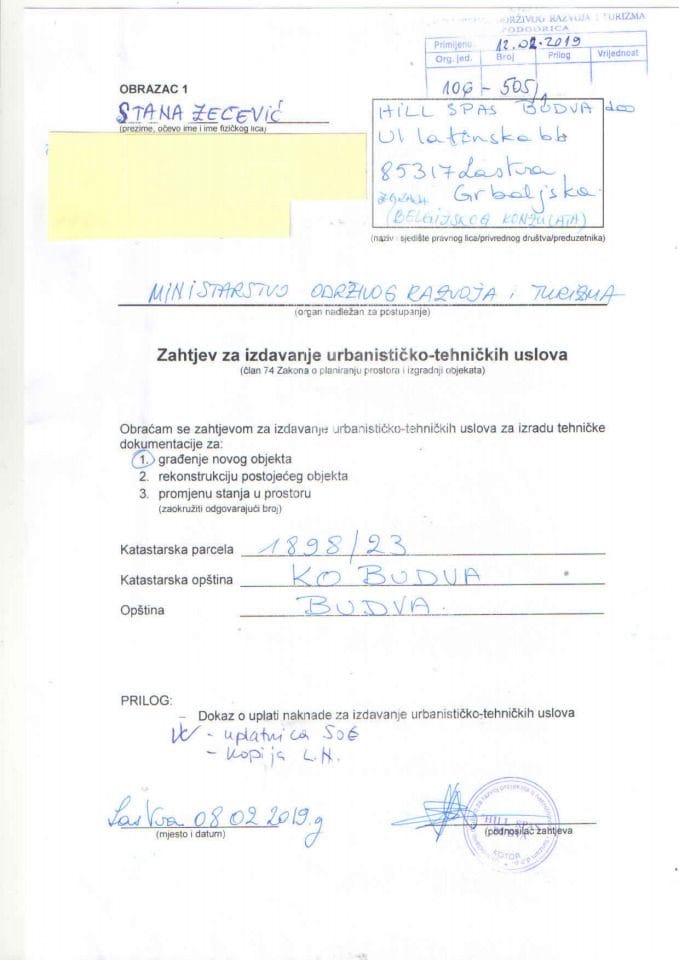 ODRŽIVOG RAZVOJA I TURIZMA
PODGORICA
Primljeno: 12.02.2019
Org. jed. Broj Prilog Vrijednost
106 - 505/1
OBRAZAC 1
STANA ZEČEVIĆ
(prezime, očevo ime i ime fizičkog lica)
HILL SPAS BUDVA doo
Ul latinska bb
85317 Lastva
Grbaljska
ZGRADA
(BELGIJSKOG KONZULATA)
(naziv i sjedište pravnog lica/privrednog društva/preduzetnika)
MINISTARSTVO ODRŽIVOG RAZVOJA i TURIZMA
(organ nadležan za postupanje)
Zahtjev za izdavanje urbanističko-tehničkih uslova
(član 74 Zakona o planiranju prostora i izgradnji objekata)
Obraćam se zahtjevom za izdavanje urbanističko-tehničkih uslova za izradu tehničke
dokumentacije za:
1. građenje novog objekta
2. rekonstrukciju postojećeg objekta
3. promjenu stanja u prostoru
(zaokružiti odgovarajući broj)
Katastarska parcela 1898/23
Katastarska opština KO BUDVA
Opština BUDVA
PRILOG:
- Dokaz o uplati naknade za izdavanje urbanističko-tehničkih uslova
- uplatnica 50€
- kopija L.N.
Lastva 08 02 2019.g
(mjesto i datum)
(podnosilac zahtjeva
HILL SPAS
KOTOR